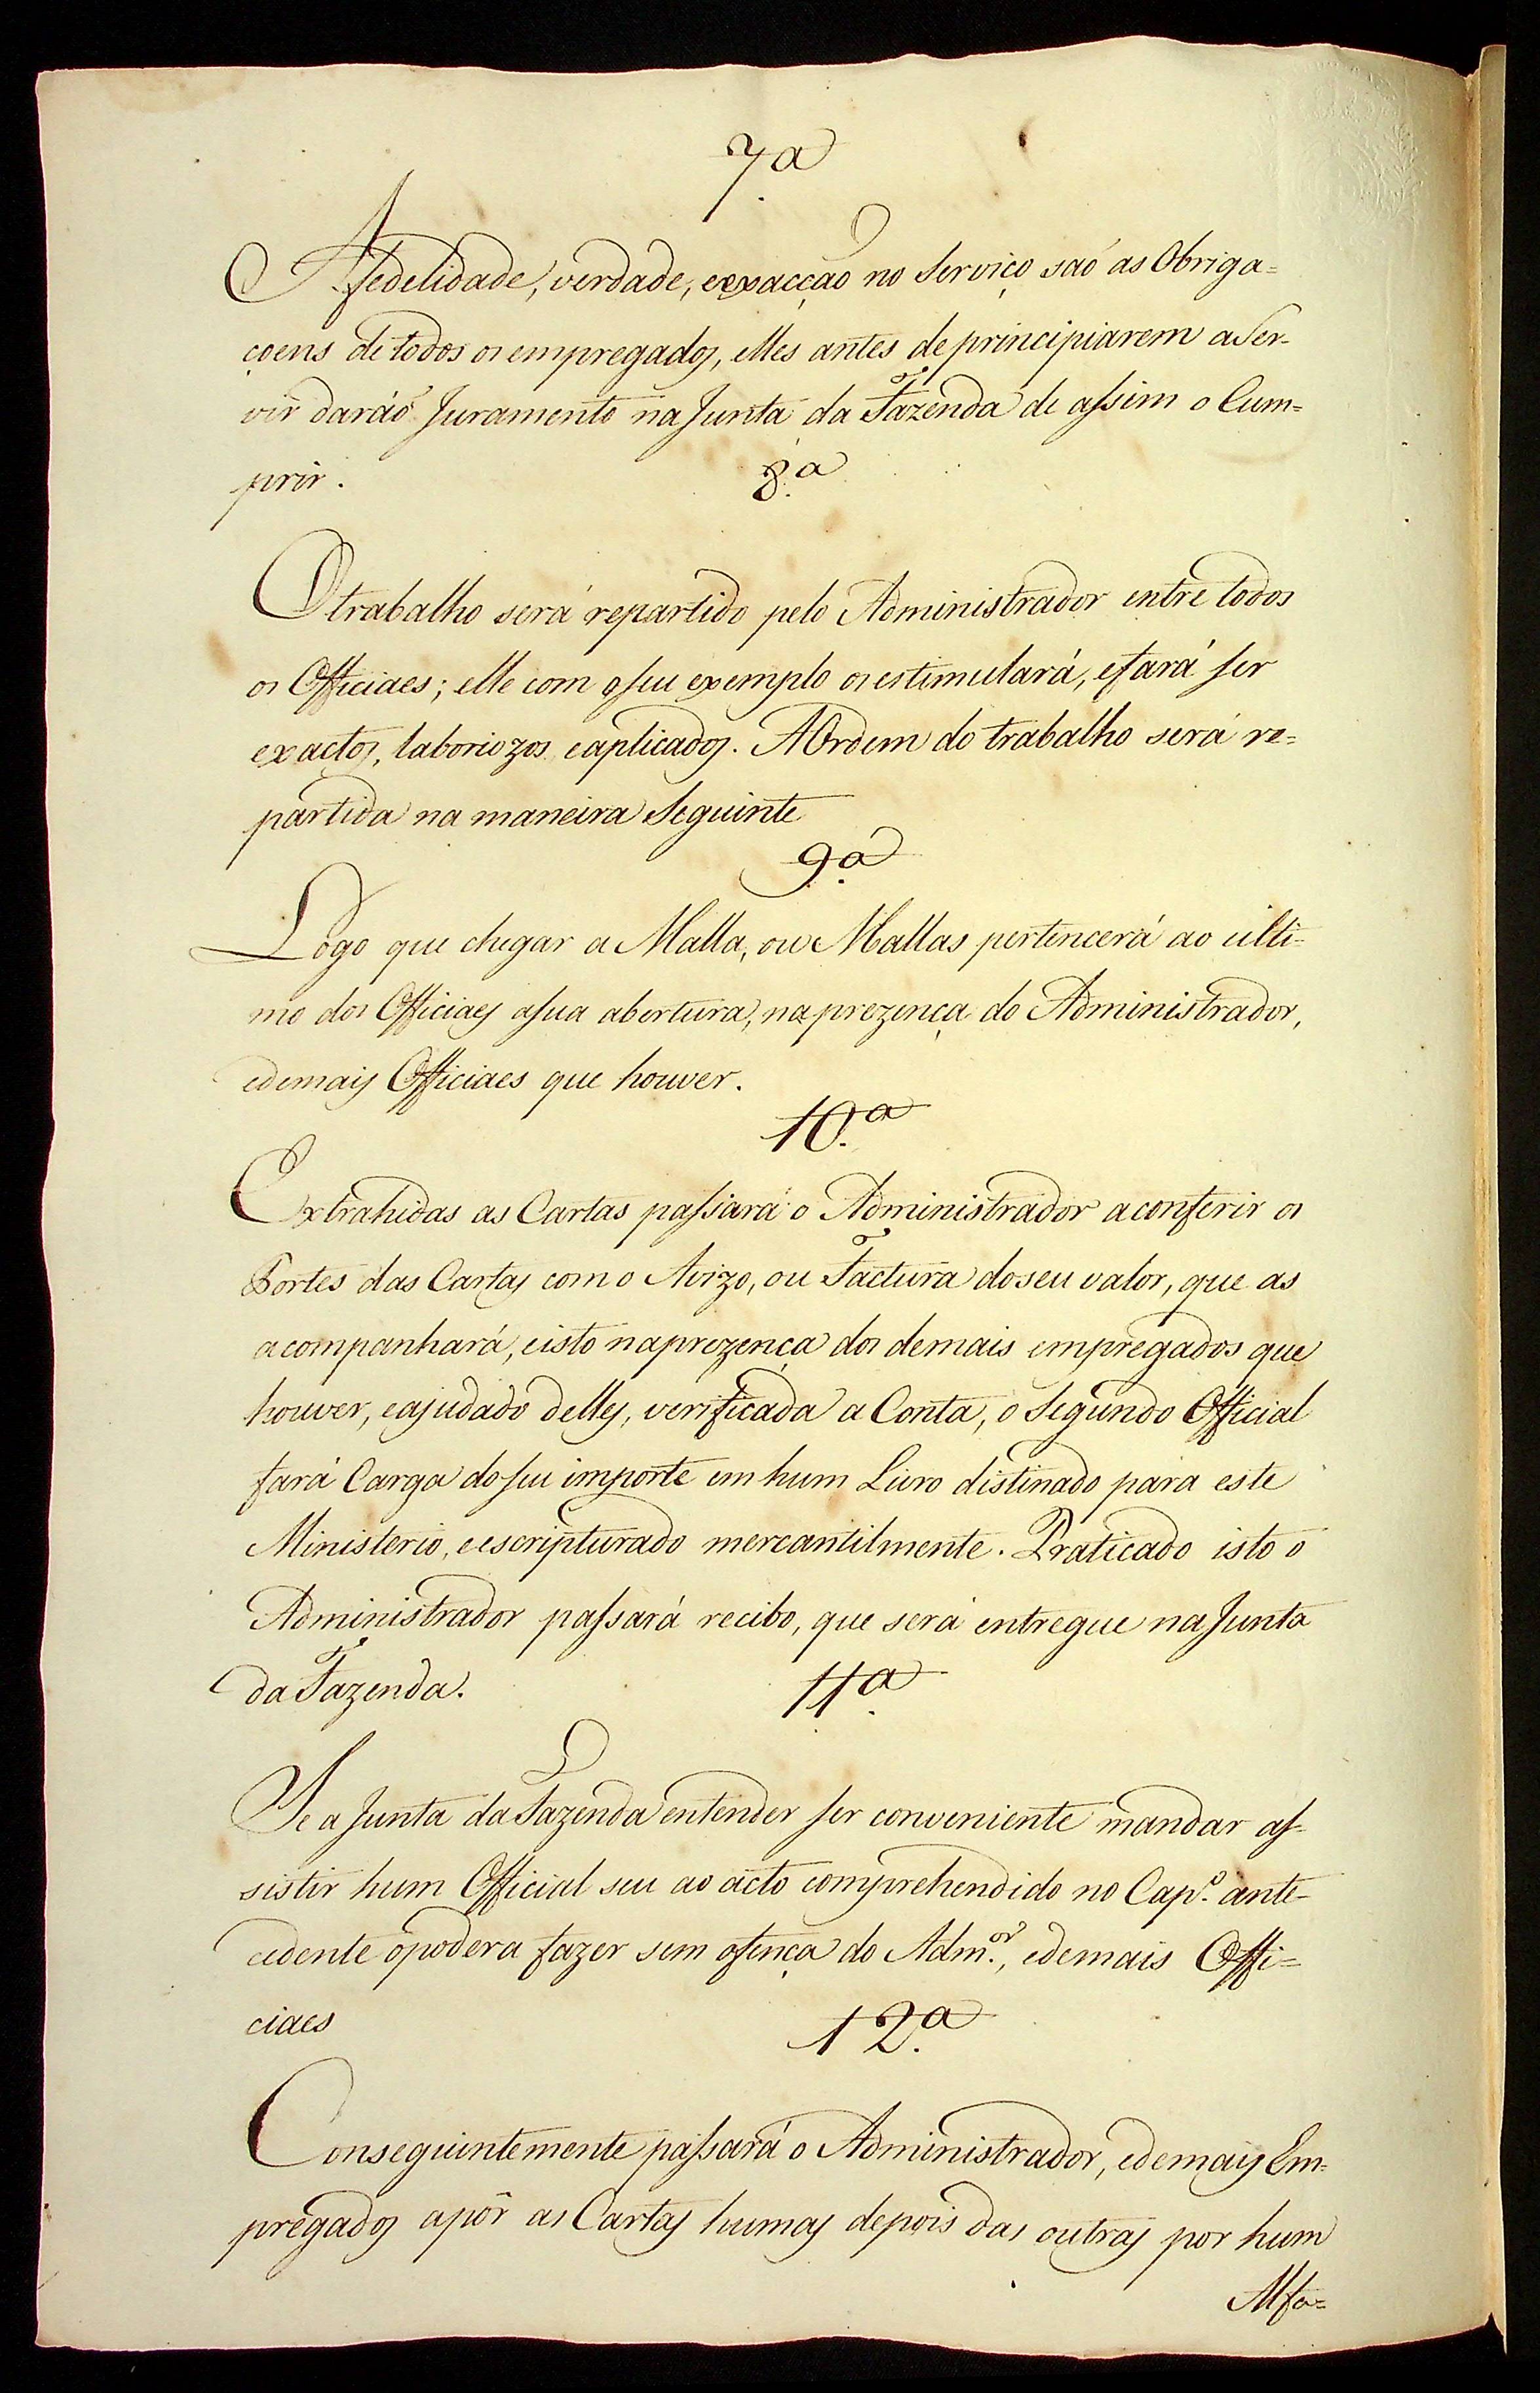 7.ª
A fedelidade, verdade, eexacção no Serviço saõ as Obriga=
çoens de todos os empregados, elles antes de principiarem a Ser-
vir daráõ Juramento na Junta da Fazenda de assim o Cum=
prir.
8.ª
O trabalho será repartido pelo Administrador entre todos
os Officiaes; elle com o seu exemplo os estimulará, e fará ser
exactos, laboriozos e aplicados. A Ordem do trabalho será re=
partida na maneira Seguinte
9.ª
Logo que chegar a Malla, ou Mallas pertencerá ao ulti-
mo dos Officiaes a sua abertura, na prezença do Administrador,
e demais Officiaes que houver.
10.ª
Extrahidas as Cartas passará o Administrador a conferir os
Portes das Cartas com o Avizo, ou Factura do seu valor, que as
acompanhará, e isto na prezença dos demais empregados que
houver, e ajudado delles, verificada a Conta, o Segundo Official
fará Carga do seu importe em hum Livro distinado para este
Ministerio, e escripturado mercantilmente. Praticado isto o
Administrador passará recibo, que será entregue na Junta
da Fazenda.
11.ª
Se a Junta da Fazenda entender ser conveniente mandar as-
sistir hum Official seu ao acto comprehendido no Cap.º ante-
cedente o poderá fazer sem ofença do Adm.or, e demais Offi=
ciaes
12.ª
Conseguintemente passará o Administrador, e demais Em-
pregados a pôr as Cartas humas depois das outras por hum
Alfa=